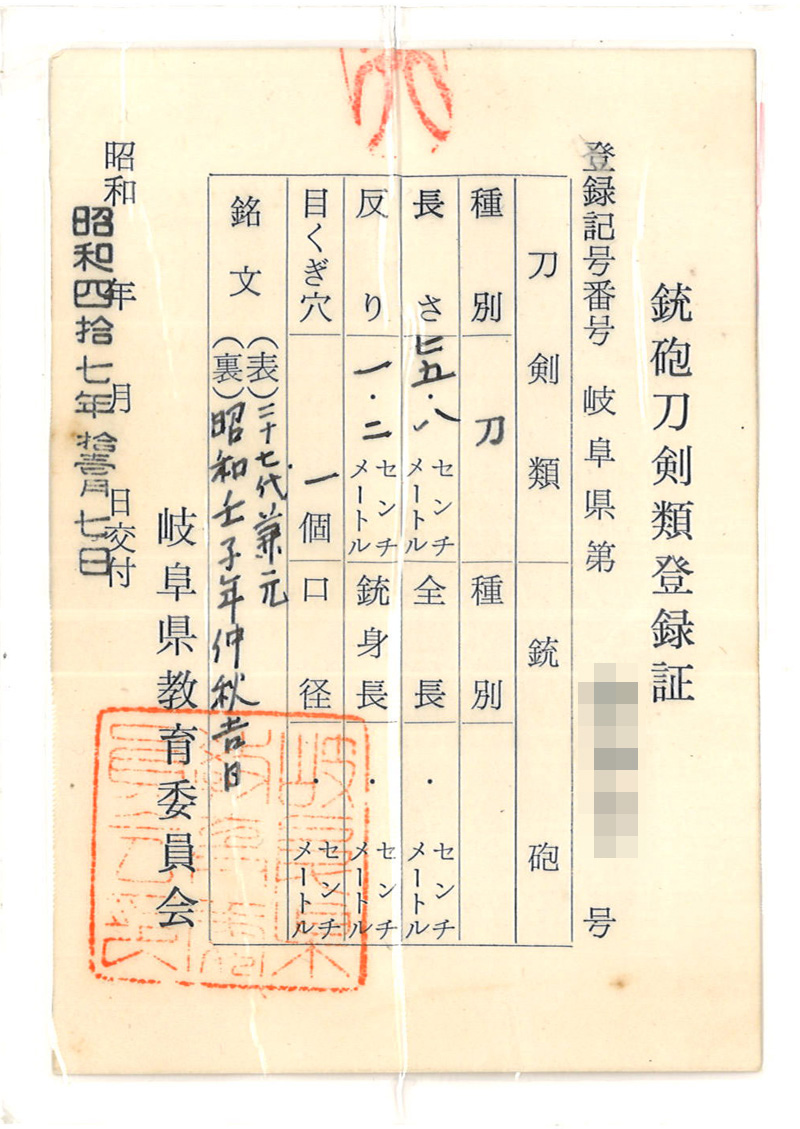 銃砲刀剣類登録証
登録記号番号 岐阜県第 号
刀剣類 銃砲
種別 刀 種別
長さ 七五・八 センチメートル 全長 ・ センチメートル
反り 一・二 センチメートル 銃身長 ・ センチメートル
目くぎ穴 一個 口径 ・ センチメートル
銘文 (表) 二十七代兼元
(裏) 昭和壬子年仲秋吉日
岐阜県教育委員会
昭和 年 月 日交付
昭和四拾七年拾壹月七日